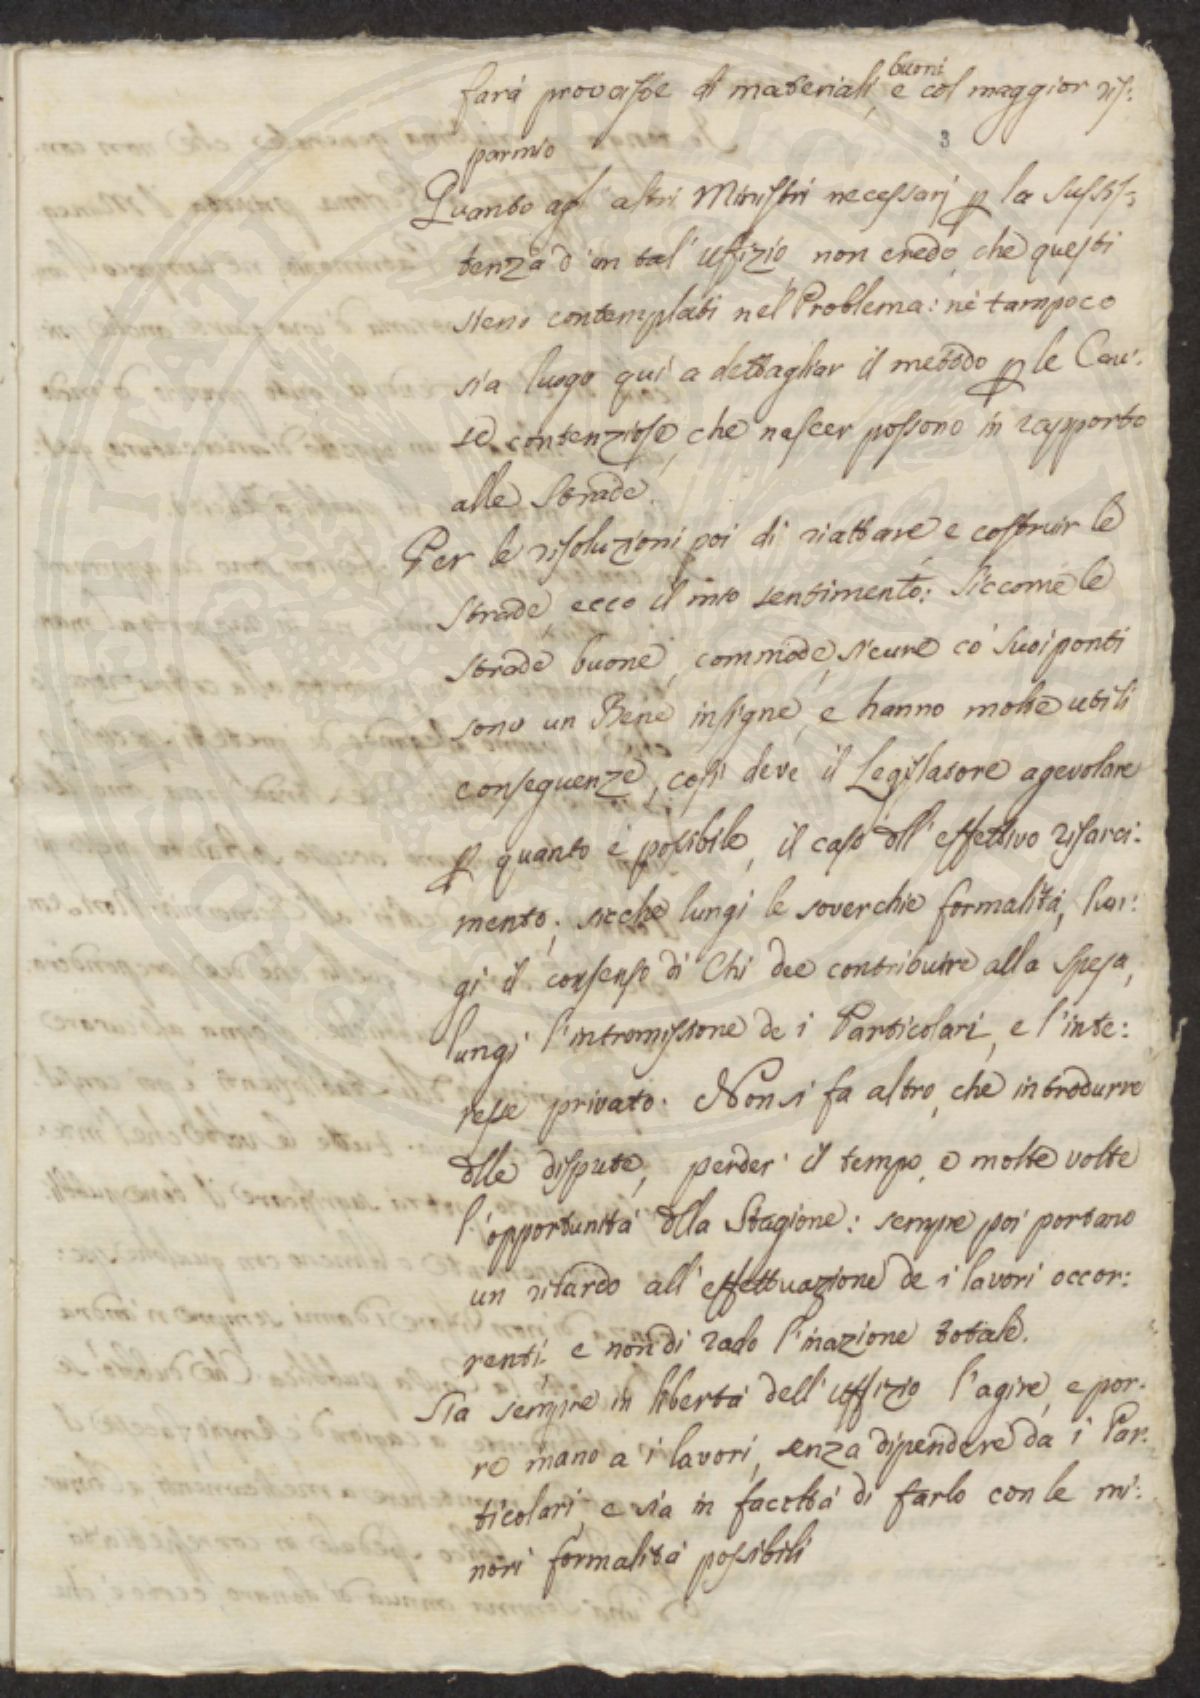 farà provviste di materiali buoni e col maggior ris:
3
parmio
Quanto agl' altri Ministri necessarj p la sussis:
tenza d'un tal' Uffizio, non credo, che questi
sieno contemplati nel Problema: nè tampoco
sia luogo qui a dettagliar il metodo p le Cau:
se contenziose, che nascer possono in rapporto
alle Strade.
Per le risoluzioni poi di riattare e costruir le
Strade, ecco il mio sentimento: Siccome le
strade buone, commode, sicure co' suoi ponti
sono un Bene insigne, e hanno molte utili
conseguenze, così deve il Legislatore agevolare
p quanto è possibile, il caso dll' effettivo risarci:
mento; sicche lungi le soverchie formalità, lun:
gi il consenso di Chi dee contribuire alla spesa,
lungi l'intromissione de i Particolari, e l'inte:
resse privato. Non si fa altro, che introdurre
dlle dispute, perder il tempo, e molte volte
l'opportunità dlla Stagione: sempre poi portano
un ritardo all' effettuazione de i lavori occor:
renti, e non di rado l'inazione totale.
Sia sempre in libertà dell' Uffizio l'agire, e por:
re mano a i lavori, senza dipendere da i Par:
ticolari, e sia in facoltà di farlo con le mi:
nori formalità possibili